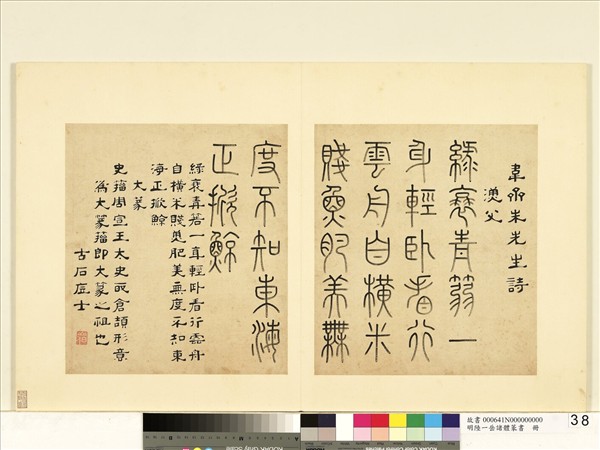 韋齋朱先生詩
漁父
綠蓑青篛一
身輕臥看行
雲舟自橫米
賤魚肥美無
度不知東海
正掀鯨
綠蓑青篛一身輕臥看行雲舟
自橫米賤魚肥美無度不知東
海正掀鯨
大篆
史籀周宣王太史取倉頡形意
為大篆籀即大篆之祖也
古石居士
故書 000641N000000000
明陸一岳諸體篆書 冊
38